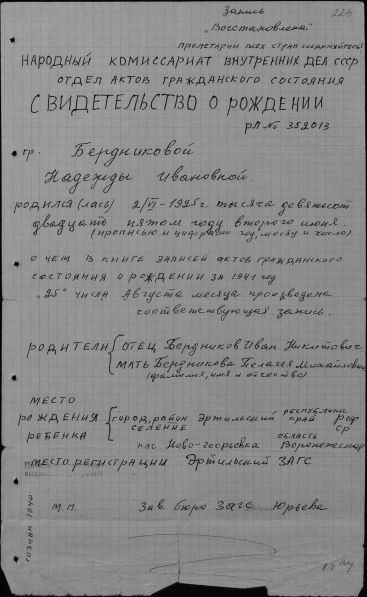 Запись
226
"Восстановлена"
Пролетарии всех стран соединяйтесь!
НАРОДНЫЙ КОМИССАРИАТ ВНУТРЕННИХ ДЕЛ СССР
ОТДЕЛ АКТОВ ГРАЖДАНСКОГО СОСТОЯНИЯ
СВИДЕТЕЛЬСТВО О РОЖДЕНИИ
РЛ № 352013
гр. Бердниковой
Надежды Ивановной.
РОДИЛСЯ (лась) 2/VI-1925г. тысяча девятьсот
двадцать пятом году второго июня.
(прописью и цифрами год, месяц и число)
О ЧЕМ В КНИГЕ ЗАПИСЕЙ АКТОВ ГРАЖДАНСКОГО
СОСТОЯНИЯ О РОЖДЕНИИ ЗА 1941 год
"25" числа Августа месяца произведена
соответствующая запись.
РОДИТЕЛИ ОТЕЦ Бердников Иван Никитович
МАТЬ Бердникова Пелагея Михайловна
(фамилия, имя и отчество)
МЕСТО
РОЖДЕНИЯ город, район Эртильский РЕСПУБЛИКА
РЕБЕНКА СЕЛЕНИЕ КРАЙ СР
пос Ново-георгевка ОБЛАСТЬ Воронежская
МЕСТО РЕГИСТРАЦИИ Эртильский ЗАГС
М.П. Зав. бюро Загс Юрьева
ГОЗНАК 1940